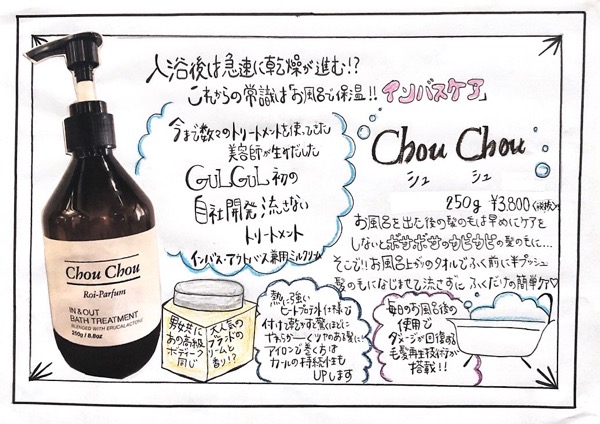 入浴後は急速に乾燥が進む!?
これからの常識は「お風呂で保温!!インバスケア」
今まで数々のトリートメントを使ってきた
美容師が生みだした
GULGUL初の
自社開発流さない
トリートメント
インバス・アウトバス兼用ミルクリィム
Chou Chou
シュ シュ
250g ¥3.800(税抜)
お風呂を出た後の髪の毛は早めにケアを
しないとボサボサのカピカピの髪の毛に…
そこで!!お風呂上がりのタオルでふく前に半プッシュ
髪の毛になじませて流さずにふくだけの簡単ケア♡
Chou Chou
Roi-Parfum
IN & OUT
BATH TREATMENT
BLENDED WITH ERUCALACTONE
250g / 8.8oz
大人気の
ブランドの
クリームと
香り!?
男女共に
あの高級
ボディーク
同じ
熱に強い
ヒートプロテクト仕様で
付けて乾かすと驚くほどに
やわらか〜くツヤのある髪に!!
アイロンで巻く方は
カールの持続性も
UPします
毎日のお風呂後の
使用で
ダメージが回復する
毛髪再生技術が
搭載!!